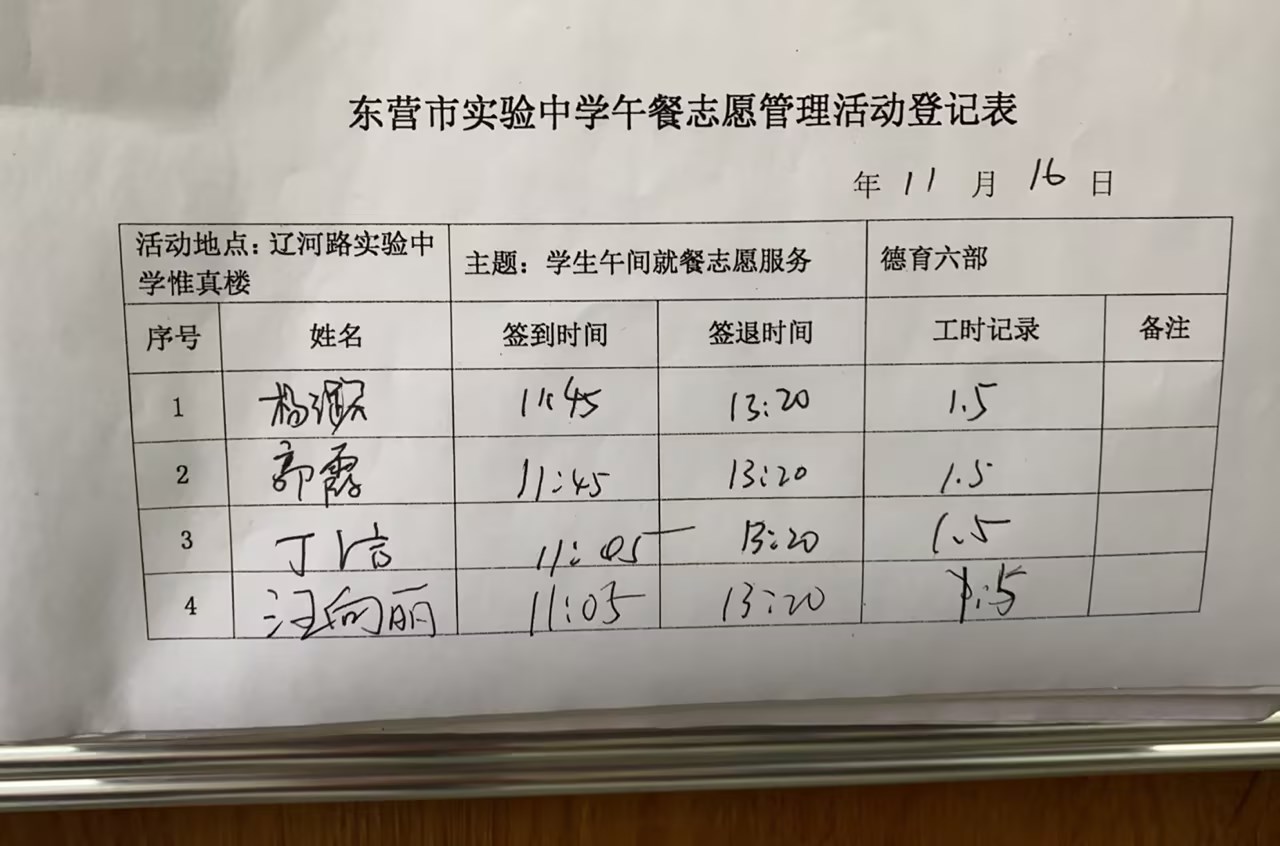 东营市实验中学午餐志愿管理活动登记表
年 11 月 16 日
活动地点：辽河路实验中
学惟真楼
主题：学生午间就餐志愿服务
德育六部
序号 姓名 签到时间 签退时间 工时记录 备注
1 杨 11:45 13:20 1.5
2 郭霞 11:45 13:20 1.5
3 丁洁 11:05 13:20 1.5
4 汪向丽 11:05 13:20 1.5